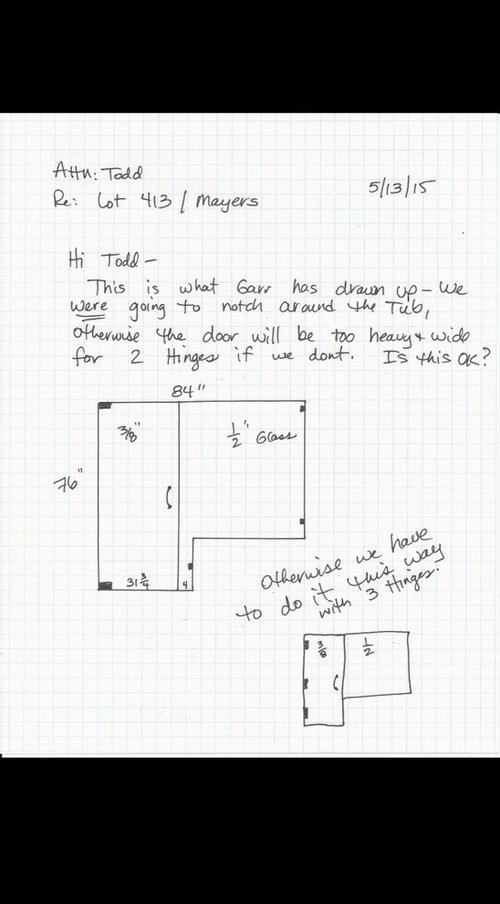 Attn: Todd
5/13/15
Re: Lot 413 / Mayers
Hi Todd -
This is what Garr has drawn up - we
were going to notch around the Tub,
otherwise the door will be too heavy & wide
for 2 Hinges if we dont. Is this OK?
84"
3/8"
1/2" Glass
76"
31 3/4
4
Otherwise we have
to do it this way
with 3 Hinges.
3/8
1/2